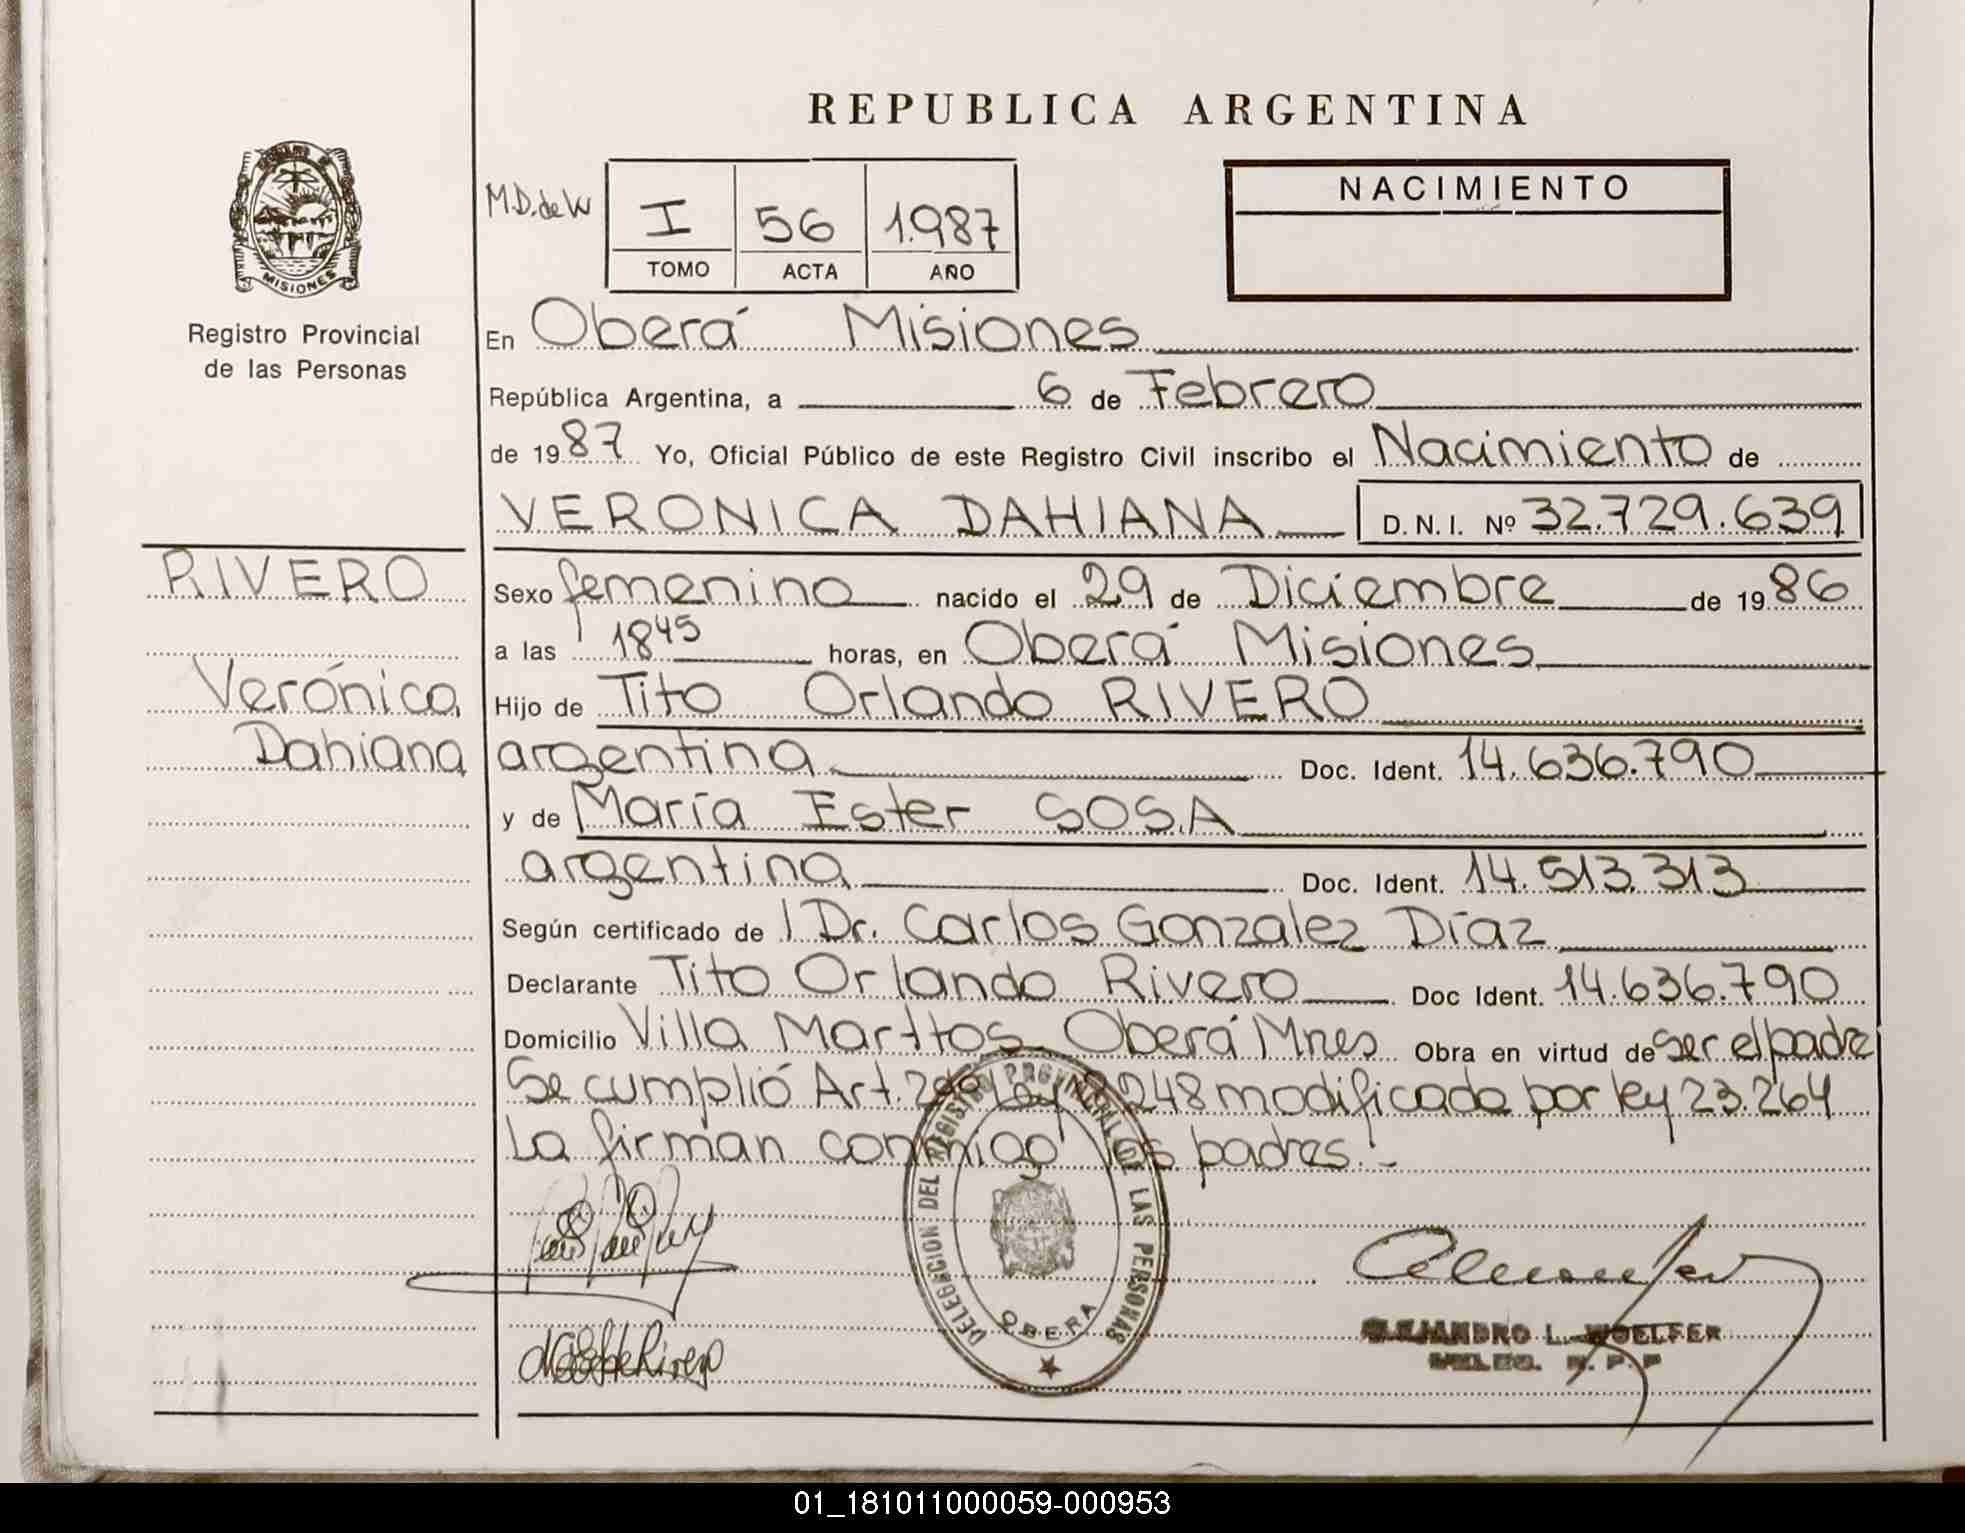 REPUBLICA ARGENTINA
M.D. de W
I 56 1.987
TOMO ACTA AÑO
NACIMIENTO
MISIONES
Registro Provincial
de las Personas
En Oberá Misiones
República Argentina, a 6 de Febrero
de 1987 Yo, Oficial Público de este Registro Civil inscribo el Nacimiento de
VERONICA DAHIANA D.N.I. Nº 32.729.639
RIVERO
Verónica
Dahiana
Sexo femenino nacido el 29 de Diciembre de 1986
a las 1845 horas, en Oberá Misiones
Hijo de Tito Orlando RIVERO
argentina Doc. Ident. 14.636.790
y de María Ester SOSA
argentina Doc. Ident. 14.513.313
Según certificado de Dr. Carlos Gonzalez Díaz
Declarante Tito Orlando Rivero Doc Ident. 14.636.790
Domicilio Villa Oberá Mnes Obra en virtud de ser el padre
Se cumplió Art. Ley 248 modificada por ley 23.264
La firman conmigo los padres.-
DELEGACION DEL REGISTRO PROVINCIAL DE LAS PERSONAS
OBERA
ALEJANDRO L. WOELFER